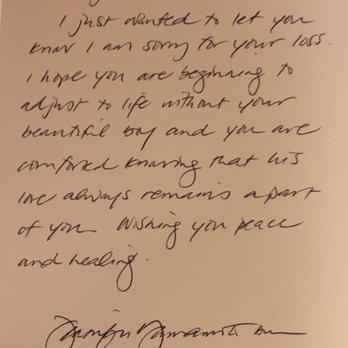 I just wanted to let you
know I am sorry for your loss.
I hope you are beginning to
adjust to life without your
beautiful boy and you are
comforted knowing that his
love always remains a part
of you. Wishing you peace
and healing.